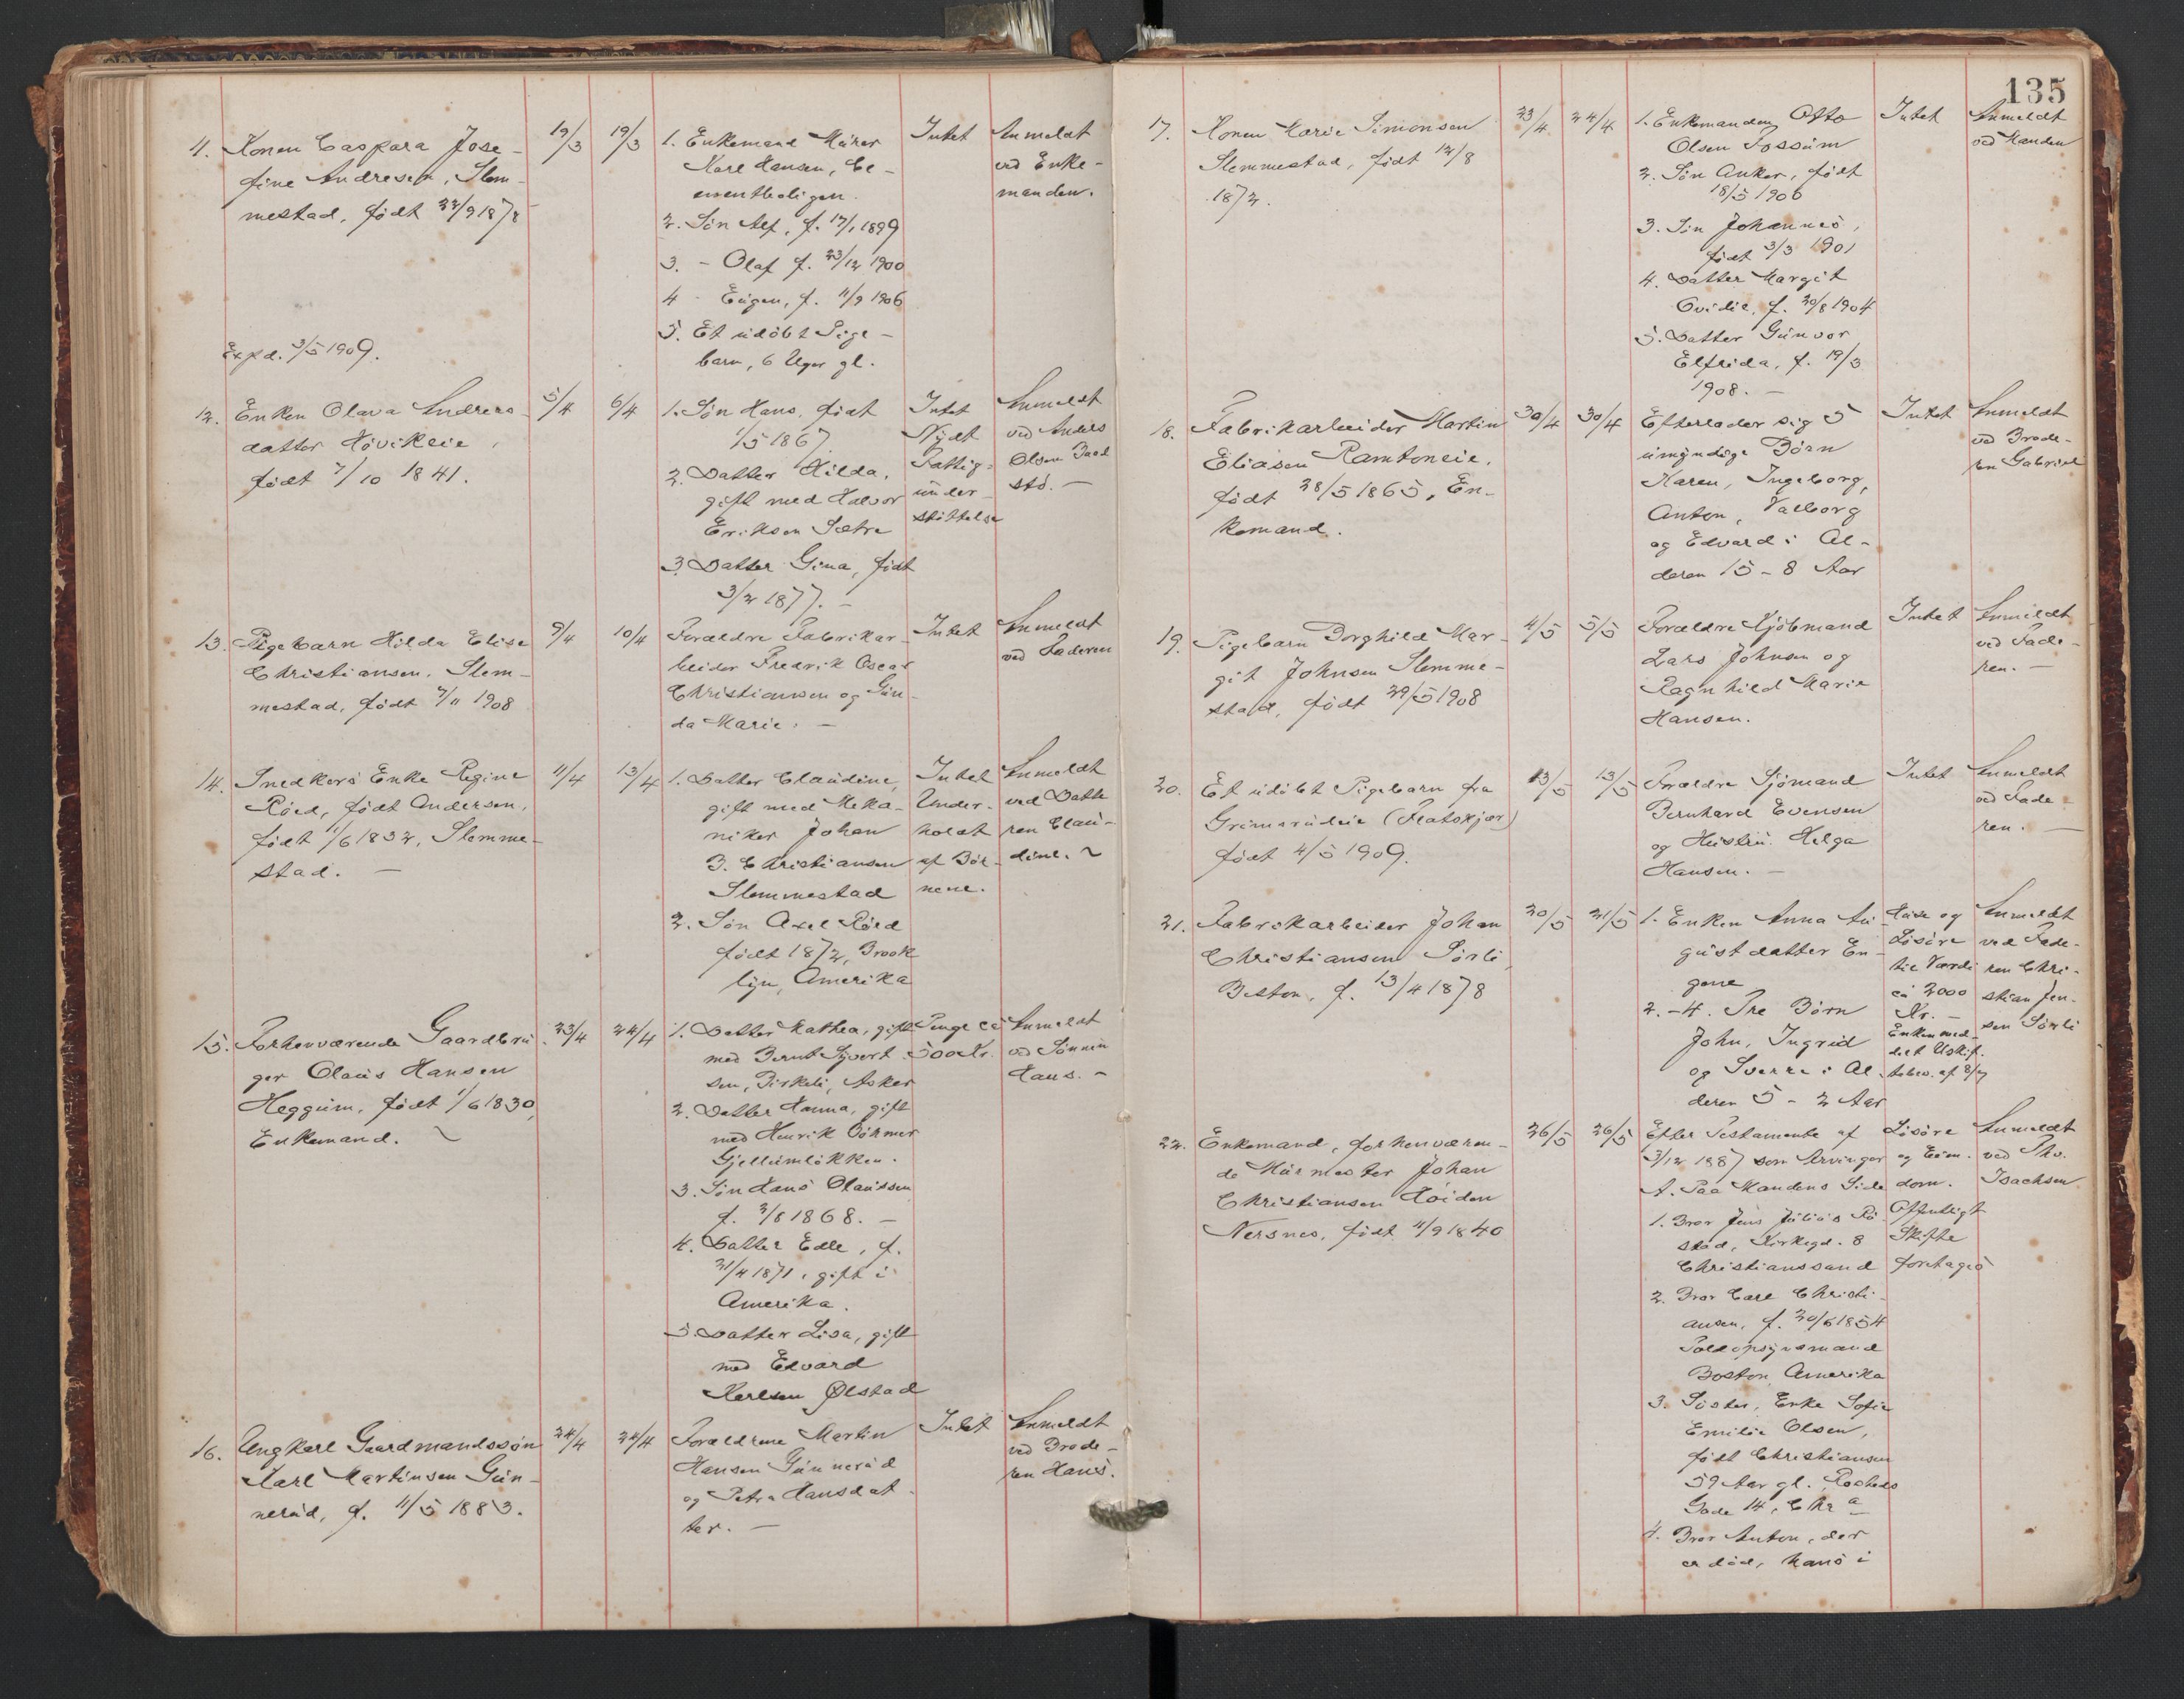 135
11. Konen Caspara Jose-
fine Andresen, Slem-
mestad, født 22/9 1878
Expd. 3/5 1909.
19/3
19/3
1. Enkemand Murer
Karl Hansen, Ce-
mentboligen.
2. Søn Alf, f. 17/1 1899
3. - Olaf f. 23/12 1900
4 - Eugen, f. 11/9 1906
5. Et udøbt Pige-
barn, 6 Uger gl.
Intet
Anmeldt
ved Enke-
manden.
12. Enken Olava Anders-
datter Høvikeie,
født 7/10 1841.
5/4
6/4
1. Søn Hans, født
1/5 1867
2. Datter Hilda,
gift med Halvor
Eriksen Sætre
3. Datter Gina, født
3/2 1877. -
Intet
Nydt
Fattig-
under-
støttelse
Anmeldt
ved Anders
Olsen
stø. -
13. Pigebarn Hilda Elise
Christiansen, Slem-
mestad, født 7/11 1908
9/4
10/4
Forældre Fabrikar-
beider Fredrik Oscar
Christiansen og Gun-
da Marie. -
Intet
Anmeldt
ved Faderen
14. Snedkers Enke Regine
Röed, født Andersen,
født 1/6 1832, Slemme-
stad. -
11/4
13/4
1. Datter Claudine,
gift med Meka-
niker Johan
B. Christiansen
Slemmestad
2. Søn Axel Röed
født 1872, Brook
lyn, Amerika
Intet
Under-
holdt
af Bör-
nene.
Anmeldt
ved Datte
ren Clau-
dine.
15. Forhenværende Gaardbru-
ger Olaus Hansen
Heggum, født 1/6 1830,
Enkemand.
23/4
24/4
1. Datter Mathea, gift
med Bernt Syvert
sen, Birkeli, Asker
2. Datter Hanna, gift
med Henrik Böhmer
Gjellumløkken.
3. Søn Hans Olaussen
f. 3/8 1868. -
4. Datter Edle, f.
21/4 1871, gift i
Amerika.
5. Datter Lisa, gift
med Edvard
Karlsen Ølstad
Penge ca
500 Kr.
Anmeldt
ved Sønnen
Hans. -
16. Ungkarl Gaardmandssøn
Karl Martinsen Gun-
nerud, f. 11/5 1883.
24/4
24/4
Forældrene Martin
Hansen Gunnerud
og Petra Hansdat-
ter. -
Intet
Anmeldt
ved Brode-
ren Hans.
17. Konen Marie Simonsen
Slemmestad, født 12/8
1872.
23/4
24/4
1. Enkemanden Otto
Olsen Fossum
2. Søn Anker, født
18/5 1906
3. Søn Johannes,
født 3/3 1901
4. Datter Margit
Ovidie, f. 30/8 1904
5. Datter Gunvor
Elfrida, f. 19/3
1908. -
Intet
Anmeldt
ved Manden
18. Fabrikarbeider Martin
Eliasen Ramtoneie,
født 28/5 1865, En-
kemand.
30/4
30/4
Efterlader sig 5
umyndige Börn
Karen, Ingeborg,
Anton, Valborg
og Edvard i Al-
deren 15 - 8 Aar
Intet
Anmeldt
ved Brode-
ren Gabriel
19. Pigebarn Borghild Mar-
git Johnsen Slemme-
stad, født 29/5 1908
4/5
5/5
Forældre Kjöbmand
Lars Johnsen og
Ragnhild Marie
Hansen.
Intet
Anmeldt
ved Fade-
ren. -
20. Et udøbt Pigebarn fra
Grimsrudeie (Flatskjær)
født 4/5 1909.
13/5
13/5
Forældre Sjömand
Bernhard Evensen
og Hustru Helga
Hansen. -
Intet
Anmeldt
ved Fade-
ren. -
21. Fabrikarbeider Johan
Christiansen Sörli,
Böston, f. 13/4 1878
20/5
21/5
1. Enken Anna Au-
gustdatter En-
gene
2. - 4. Tre Börn
John, Ingrid
og Sverre i Al-
deren 5 - 2 Aar
Huse og
Løsøre
til Værdi
ca 2000
Kr. -
Enken med-
delt Uskif-
af 8/7
Anmeldt
ved Fade-
ren Chri-
stian Jen-
sen Sörli
22. Enkemand, forhenværen-
de Murmester Johan
Christiansen Höiden
Nersnes, født 11/9 1840
26/5
26/5
Efter Testamente af
3/12 1887 som Arvinger
A. Paa Mandens Side
1. Bror Jens Julius Rö-
stad, Kirkegd. 8
Christianssand
2. Bror Carl Christi-
ansen, f. 20/6 1854
Toldopsynsmand
Boston Amerika
3. Søster, Enke Sofie
Emilie Olsen,
født Christiansen
59 Aar gl.,
Gade 14, Chr a
4. Bror Anton, der
er död, hans i
Løsøre
og Eien-
dom.
Offentligt
Skifte
foretages
Anmeldt
ved Thv.
Isachsen